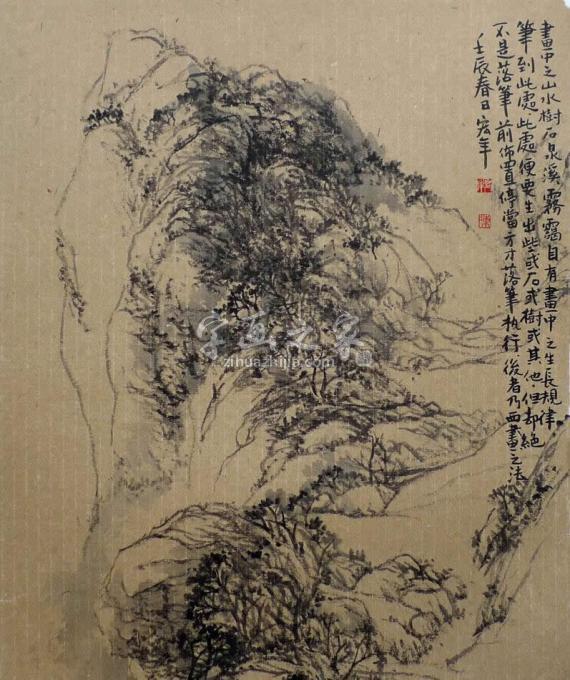 畫中之山水樹石泉溪霧靄自有畫中之生長規律
筆到此處此處便要生出些或石或樹或其他但却絕
不是落筆前佈置停當方才落筆执行後者乃西畫之法
壬辰春日宏年
字画之家
zihuazhijia.com